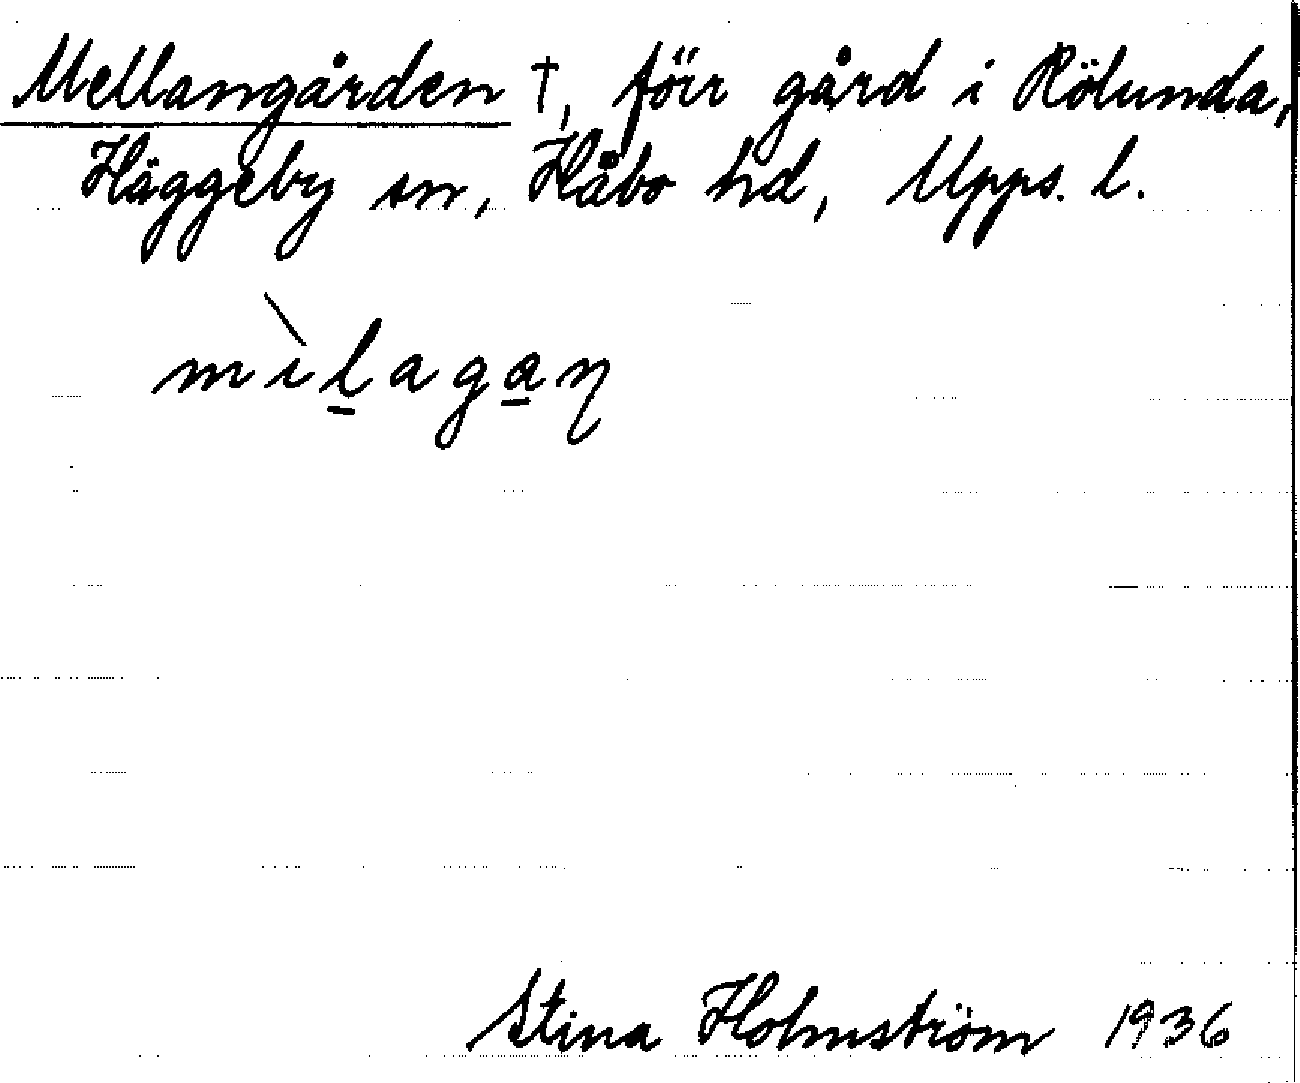 Mellangården †, förr gård i Rölunda,
Häggeby sn, Håbo hd, Upps. l.
mìl̠aga̠ɳ
Stina Holmström 1936